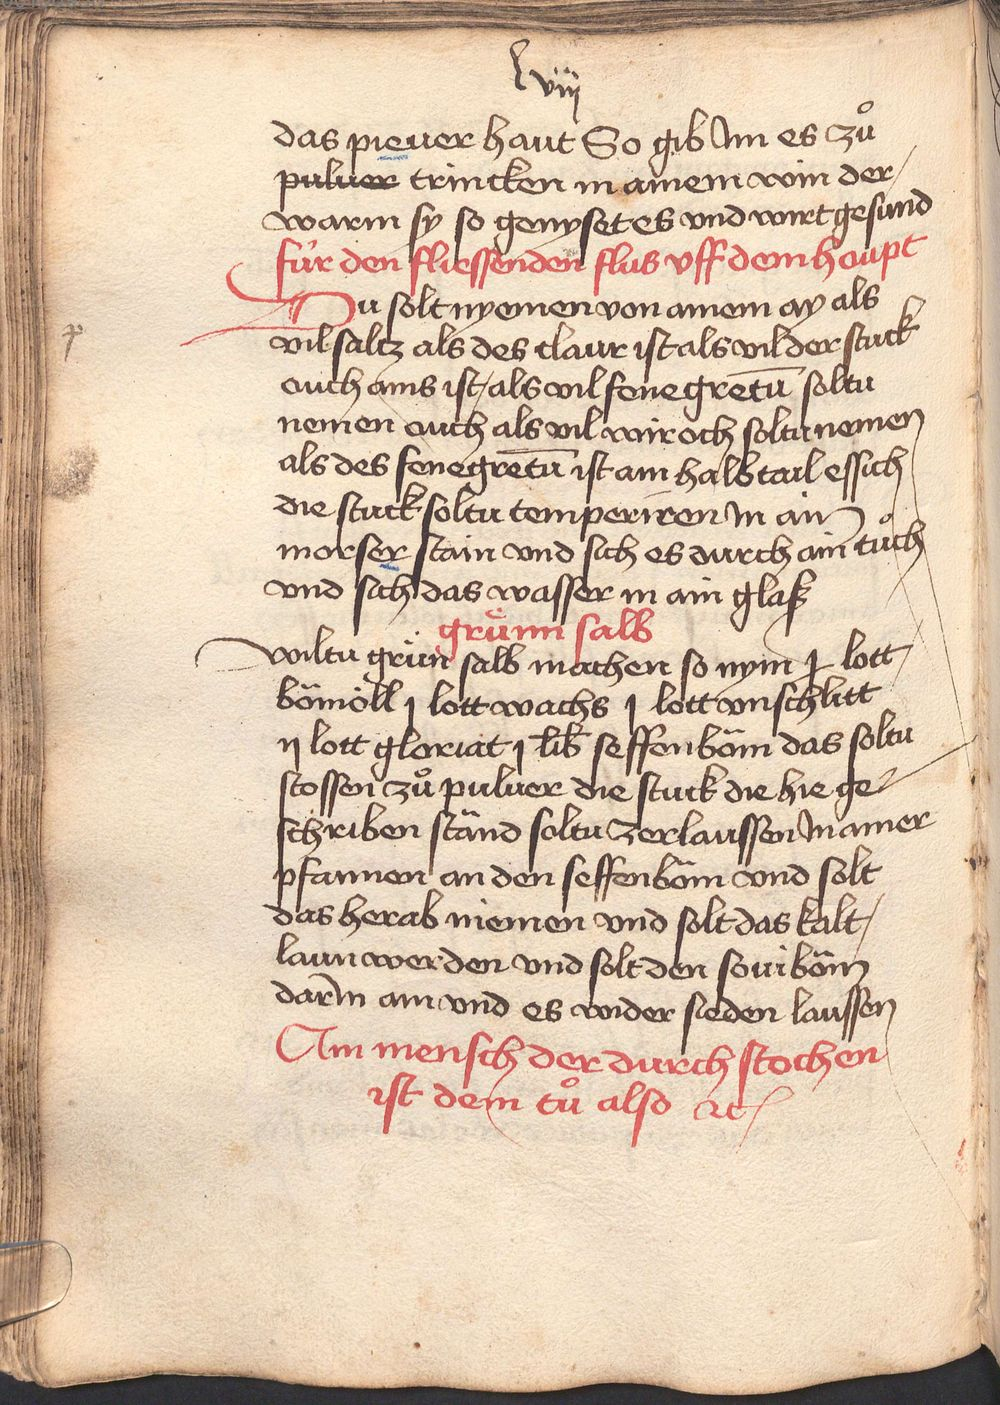 lviij
das pieuer haut So gib Im es zů
puluer trincken in ainem win der
warm sy so genyset es vnd wirt gesund
für den fliessenden flus vff dem houpt
Du solt nyemen von ainem ay als
vil saltz als des claur ist als vil der stuck
ouch ains ist als vil fenegretū soltu
nemen ouch als vil wiroch soltu nemen
als des fenegretū ist ain halb tail essich
die stuck soltu temperiren In ain
morser stain vnd sich es durch ain tůch
vnd sich das wasser in ain glaß
grünn salb
wiltu grün salb machen so nym j lott
bömöll j lott wachs j lott vnschlitt
ij lott gloriat j lib seffenböm das soltu
stossen zů puluer die stuck die hie ge
schriben ständ soltu zerlaussen In ainer
pfannen an den seffenböm vnd solt
das herab niemen vnd solt das kalt
laun werden vnd solt den souiböm
darin ain vnd es wider sieden laussen
Ain mensch der durch stochen
ist dem tů also ⁊c